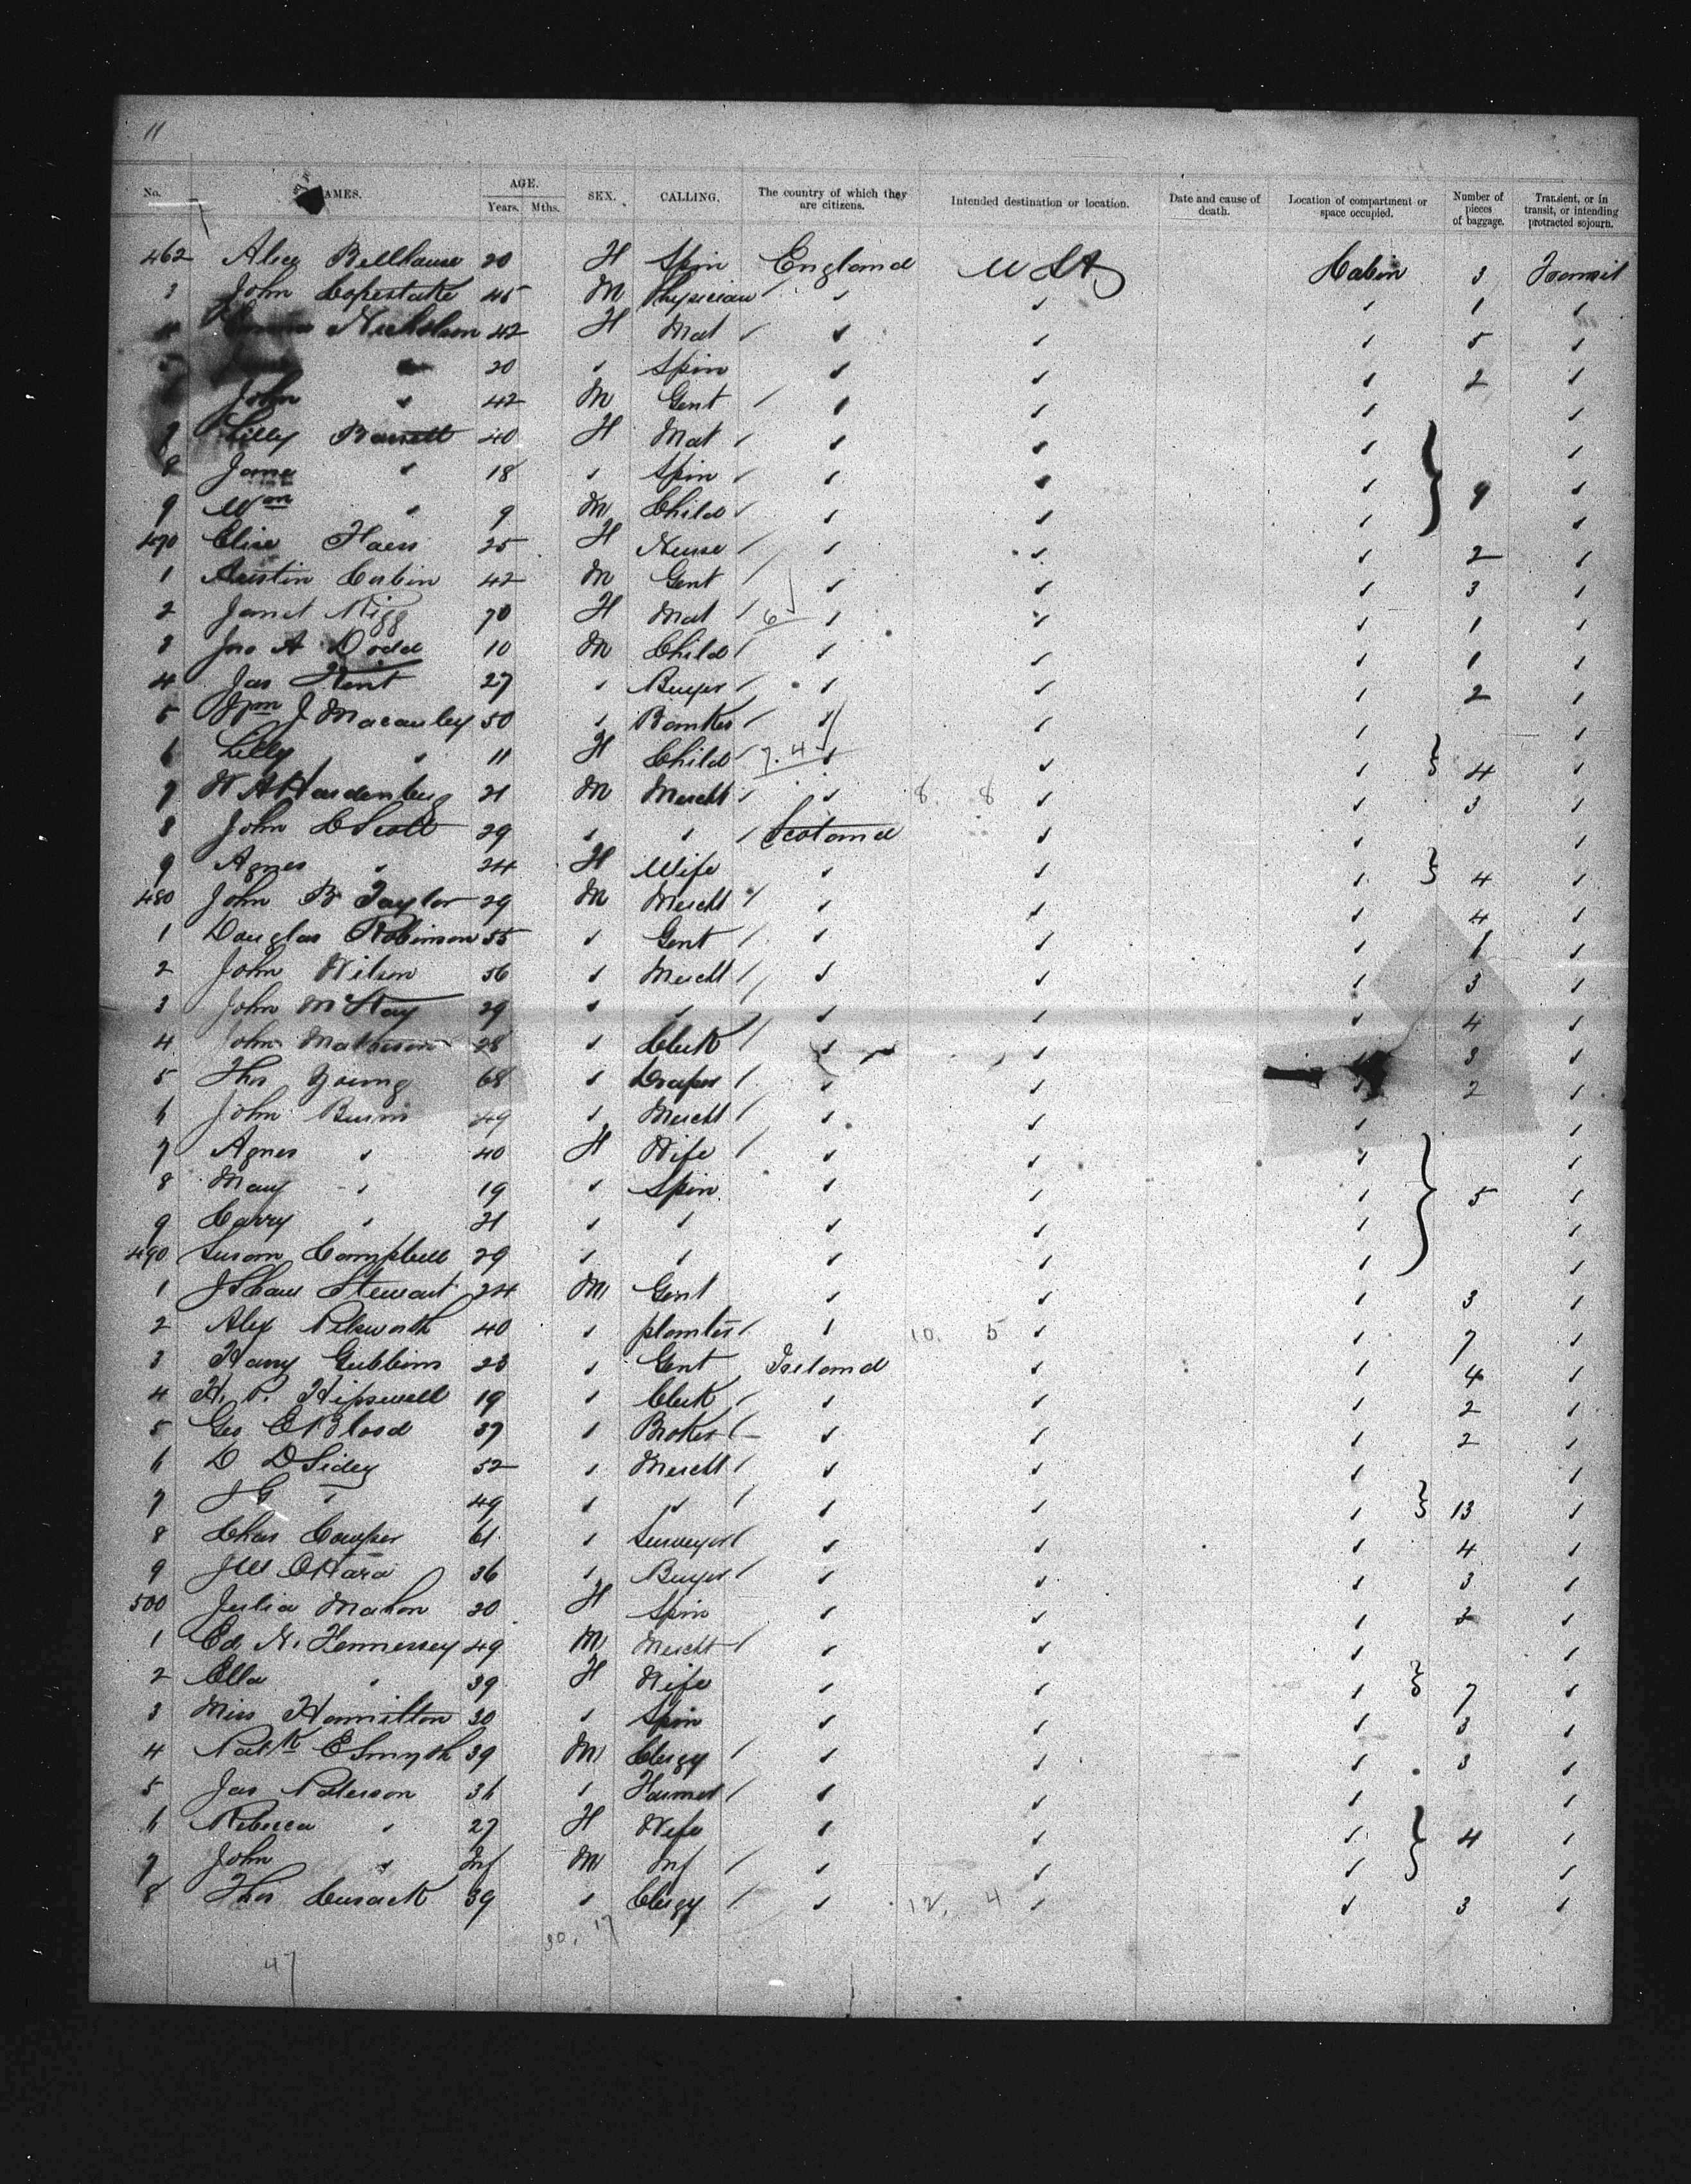 11
No. NAMES. AGE. Years. Mths. SEX. CALLING. The country of which they are citizens. Intended destination or location. Date and cause of death. Location of compartment or space occupied. Number of pieces of baggage. Transient, or in transit, or intending protracted sojourn.
462 Alice Bellhouse 20 F Spin England U St Cabin 3 Transit
3 John Copestake 45 M Physician 1
4 Nicholson 42 F Mat 5
5 20 Spin 2
John 42 M Gent
7 Lilly 40 F Mat
8 Jane 18 Spin 9
9 Wm 9 M Child
470 Elise Haess 25 F Nurse 2
1 Austin Corbin 42 M Gent 3
2 Janet Rigg 70 F Mat 6 1
3 Jno A Dodd 10 M Child 1
4 Jas Kent 27 Buyer 2
5 J Macauley 50 Banker
6 Lilly 11 F Child 7. 4 4
7 W A Hardenberg 21 M Mercht 8. 8 3
8 John C Scott 29 Scotland
9 Agnes 24 F Wife 4
480 John B Taylor 29 M Mercht 4
1 Douglas Robinson 55 Gent 1
2 John Wilson 56 Mercht 3
3 John McKay 29 4
4 John Matheson 28 Clerk 3
5 Thos Young 68 Draper 2
6 John Burns 49 Mercht
7 Agnes 40 F Wife
8 Mary 19 Spin 5
9 Carry 21
490 Susan Campbell 29
1 J Shaw Stewart 24 M Gent 3
2 Alex 40 planter 10. 5 7
3 Harry Gubbins 23 Gent Ireland 4
4 H. P. Hipswell 19 Clerk 2
5 Geo E 37 Broker 2
6 D D Sidey 52 Mercht
7 J G 49 13
8 Chas Cowper 61 Surveyor 4
9 J W OHara 36 Buyer 3
500 Julia Mahon 20 F Spin 2
1 Ed N. Hennessey 49 M Mercht
2 Ella 39 F Wife 7
3 Miss Hamilton 30 Spin 3
4 Patk E Smyth 39 M Clergy 3
5 Jas Paterson 36 Farmer
6 Rebecca 27 F Wife 4
7 John Inf M Inf
8 Thos Cusack 39 Clergy 12. 4 3
30. 17
47